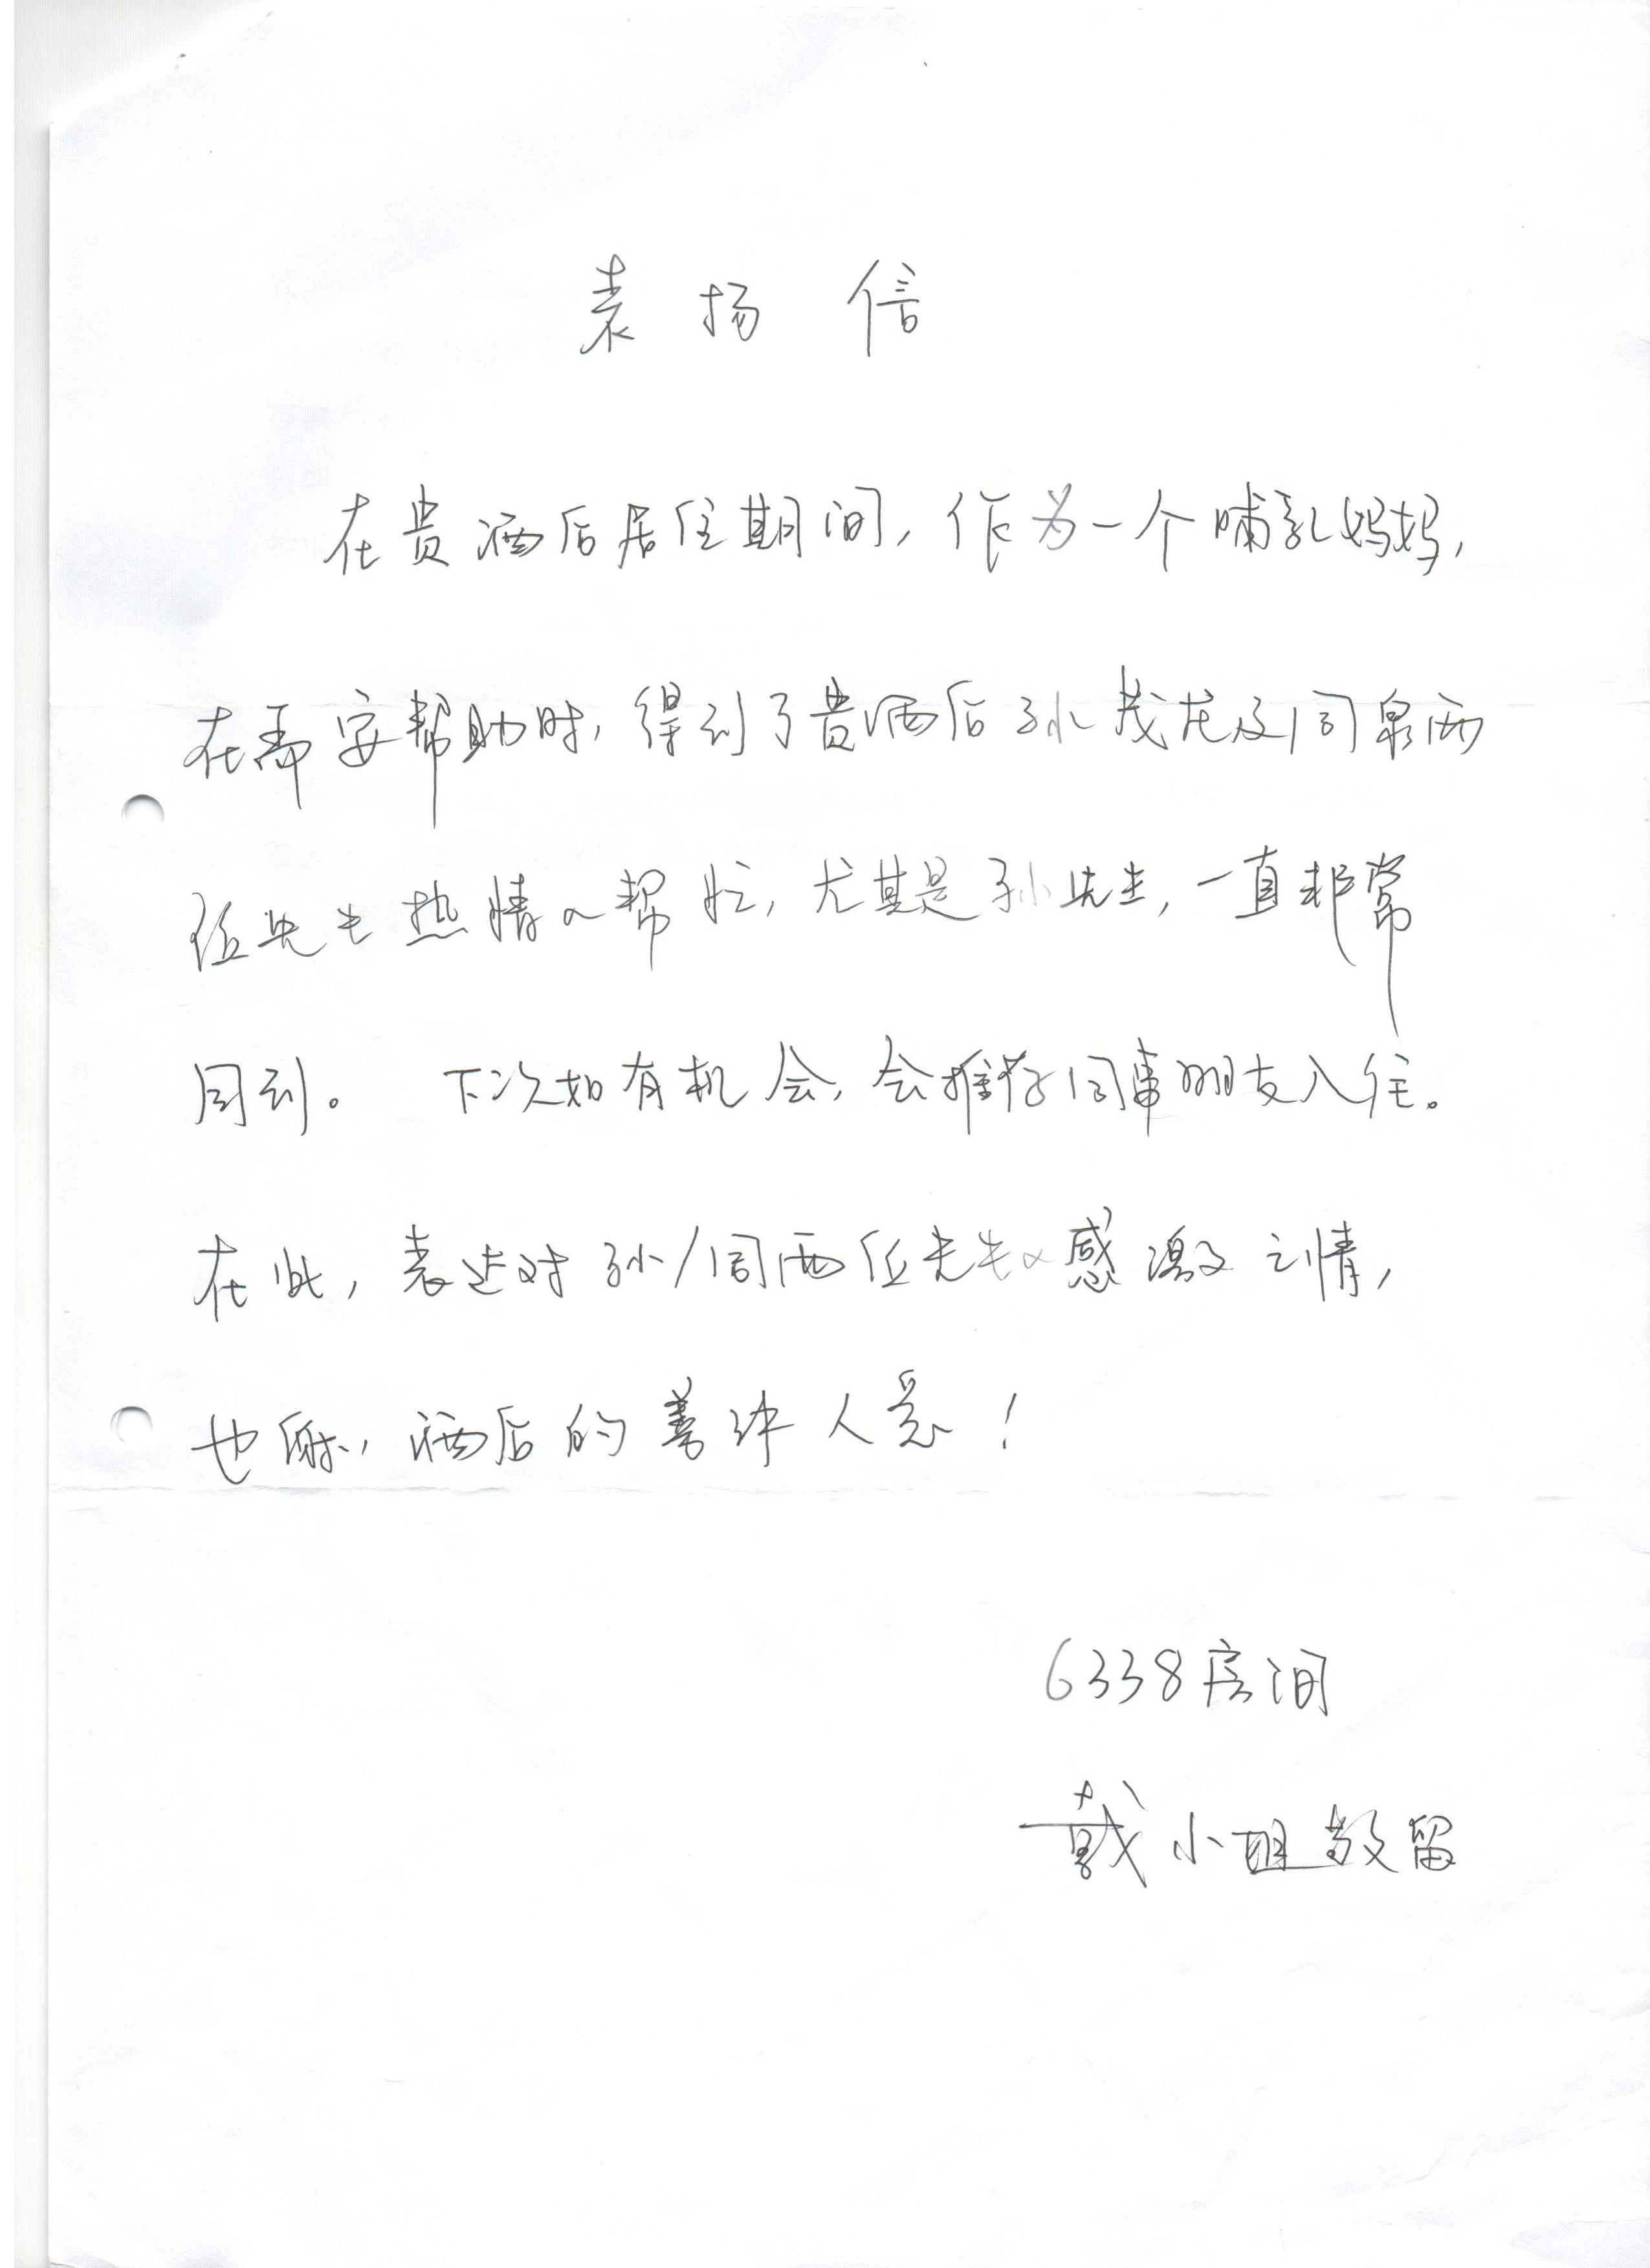 表扬信
在贵酒店居住期间，作为一个哺乳妈妈，
在需要帮助时，得到了贵酒店孙茂龙及周泉两
位先生热情的帮忙，尤其是孙先生，一直非常
周到。 下次如有机会，会推荐同事朋友入住。
在此，表达对孙/周两位先生的感激之情，
也感谢酒店的善解人意！
6338房间
戴小姐敬留